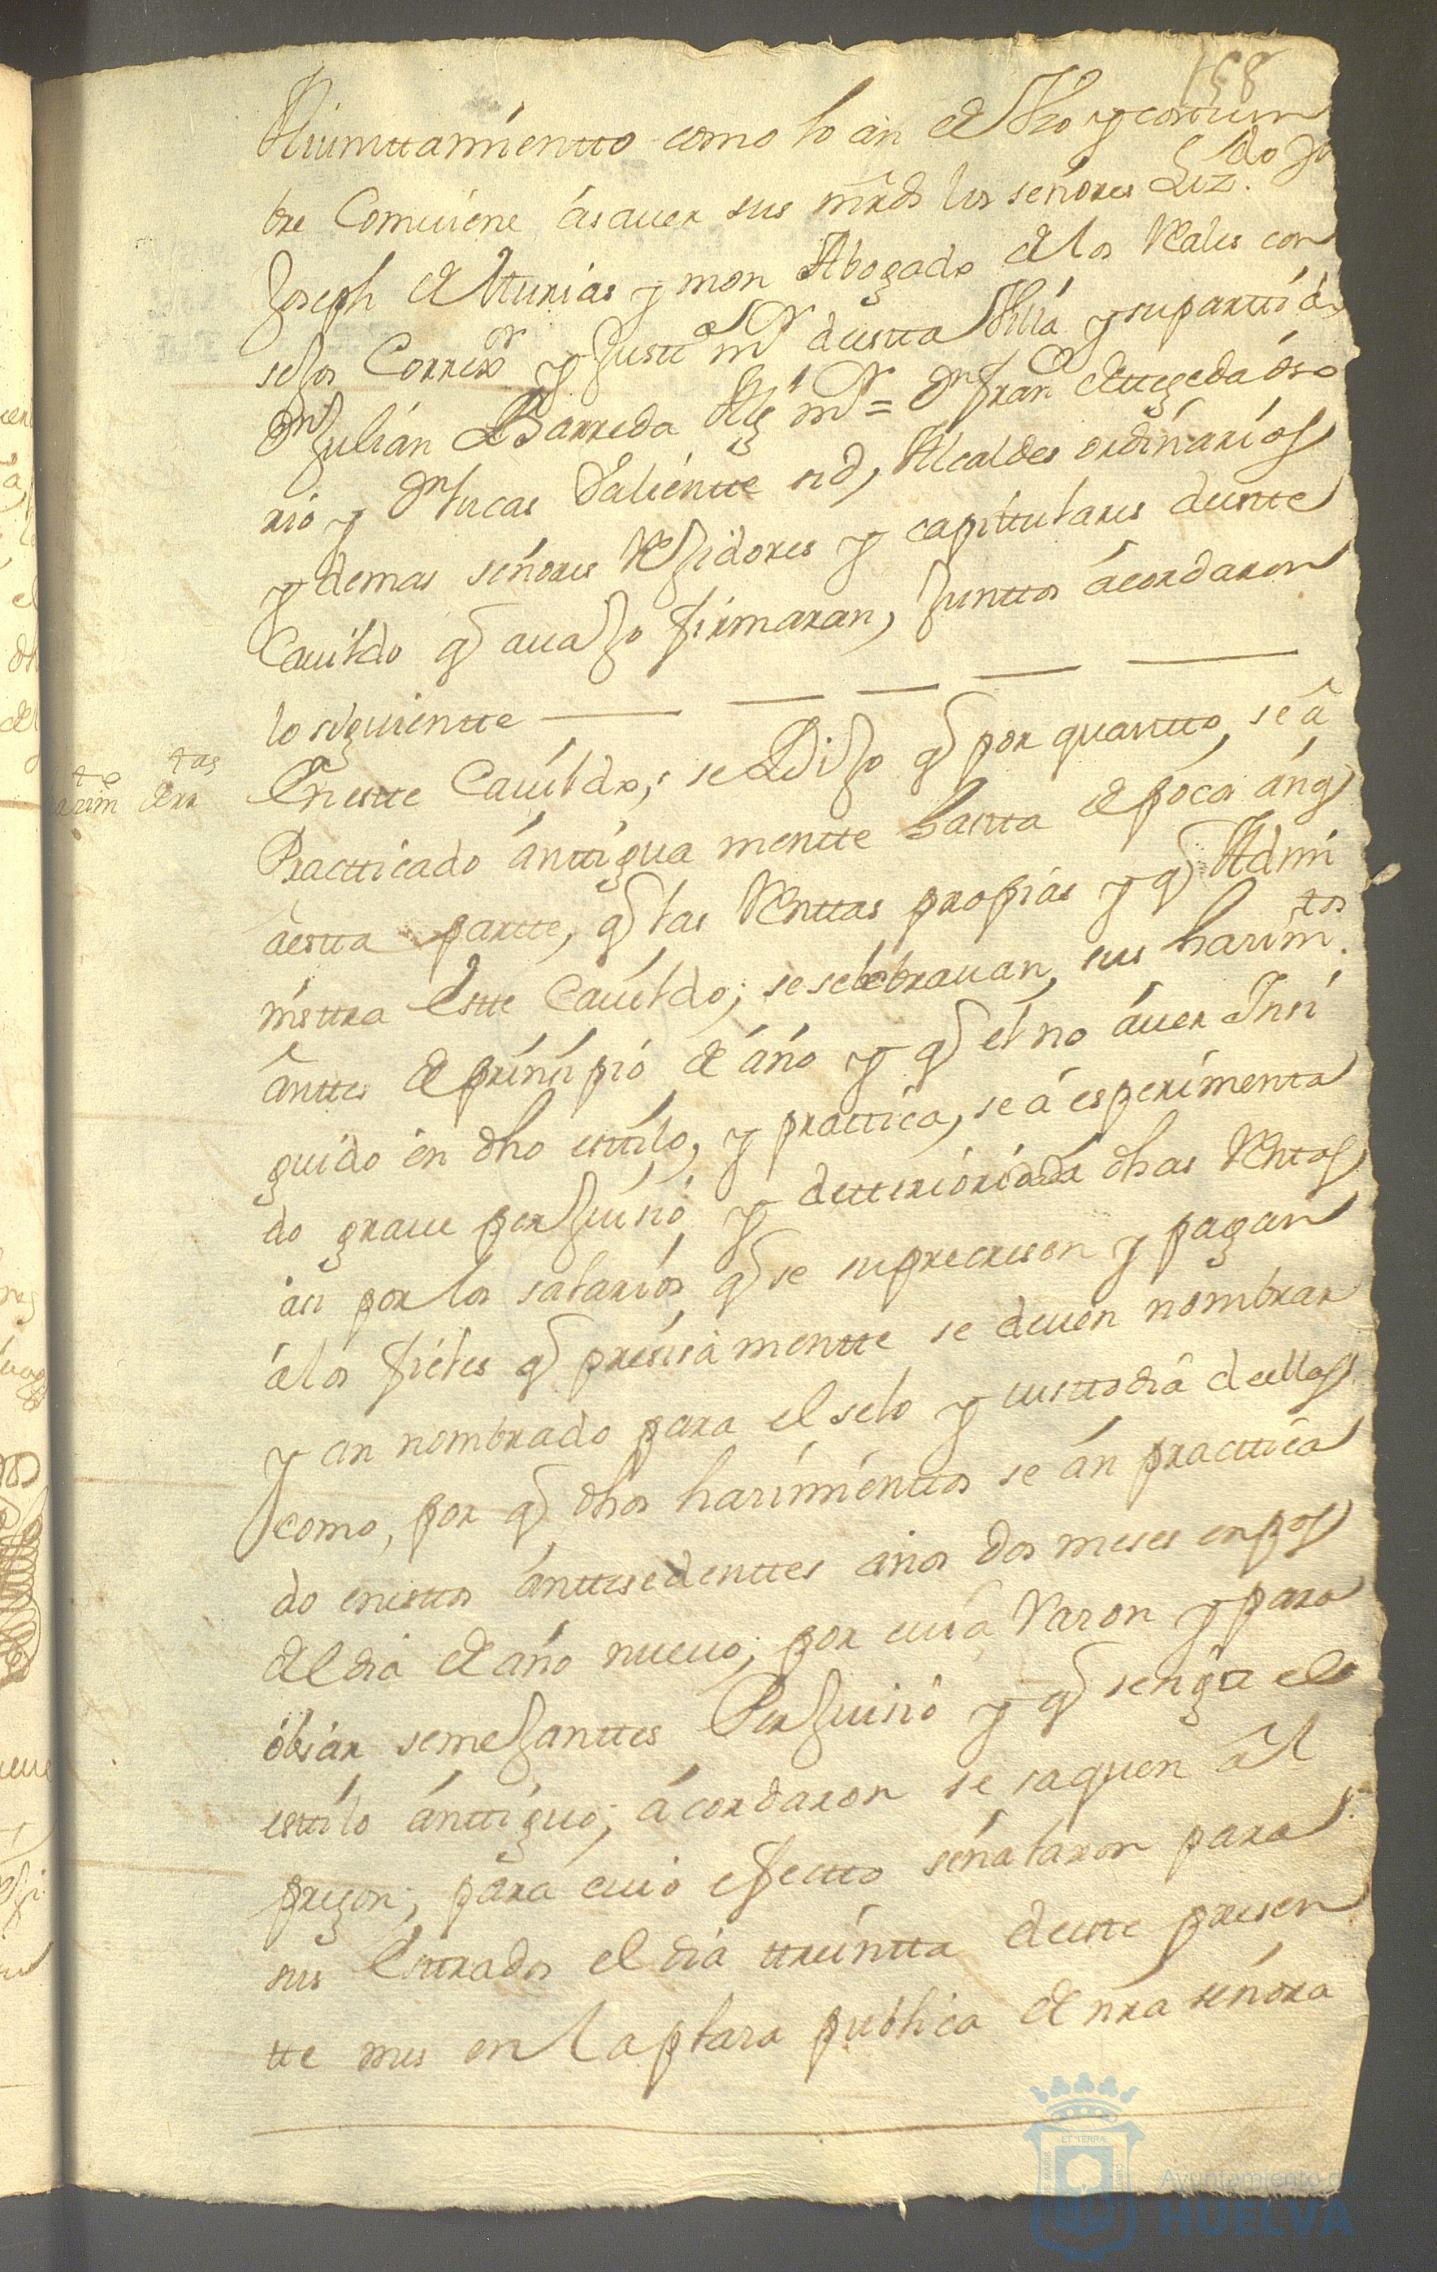 158
Aiunttamientto como lo an de Vso y costum
bre Comuiene ásauer sus mrds los señores Lizdo Dn
Joseph de Asturias y mon Abogado de los Rales con
sejos Correxor y Justa mr destta Villa y supartido
Dn Julián Barreda Alg1 mr = Dn Franco de Uzeda óso
rio y Dn lucas Valientte sid, Alcaldes ordinários
y demas señores Rexidores y capittulares destte
Cauildo q auajo firmaran, Junttos ácordaron
lo siguientte
harimto de Rtas
En estte Cauildo; se Dijo q por quantto, se á
Practticado ánttigua mentte hasta de pocos áns
áestta partte, q las Renttas propias y q Admi
nisttra Estte Cauildo; se selebrauan, sus harimtos
ánttes de prinsipio de áño y q el no áuer Insi
guido én dho esttilo, y practtica, se á esperimenta
do graue perjuisió y detteriórida dhas Rentas
ási por los salariós q se supreresen y pagan
álos fieles q presisa mentte se deuen nombrar
y an nombrado para el selo y custtodiá deellas
como, por q dhos harimienttos se án practtica
do enesttos ánttesedenttes años dos meses enpos
del dia de áño nueuo; por cuiá Razon y para
óbiar semejanttes Perjuisió y q senga el
esttilo ánttiguo; ácordaron se saquen ál
pregon; para cuió efectto señalaron para
sus Esttrados el dia ttreintta destte presen
tte mes en la plaza publica de nra señora
Ayuntamiento de
HUELVA